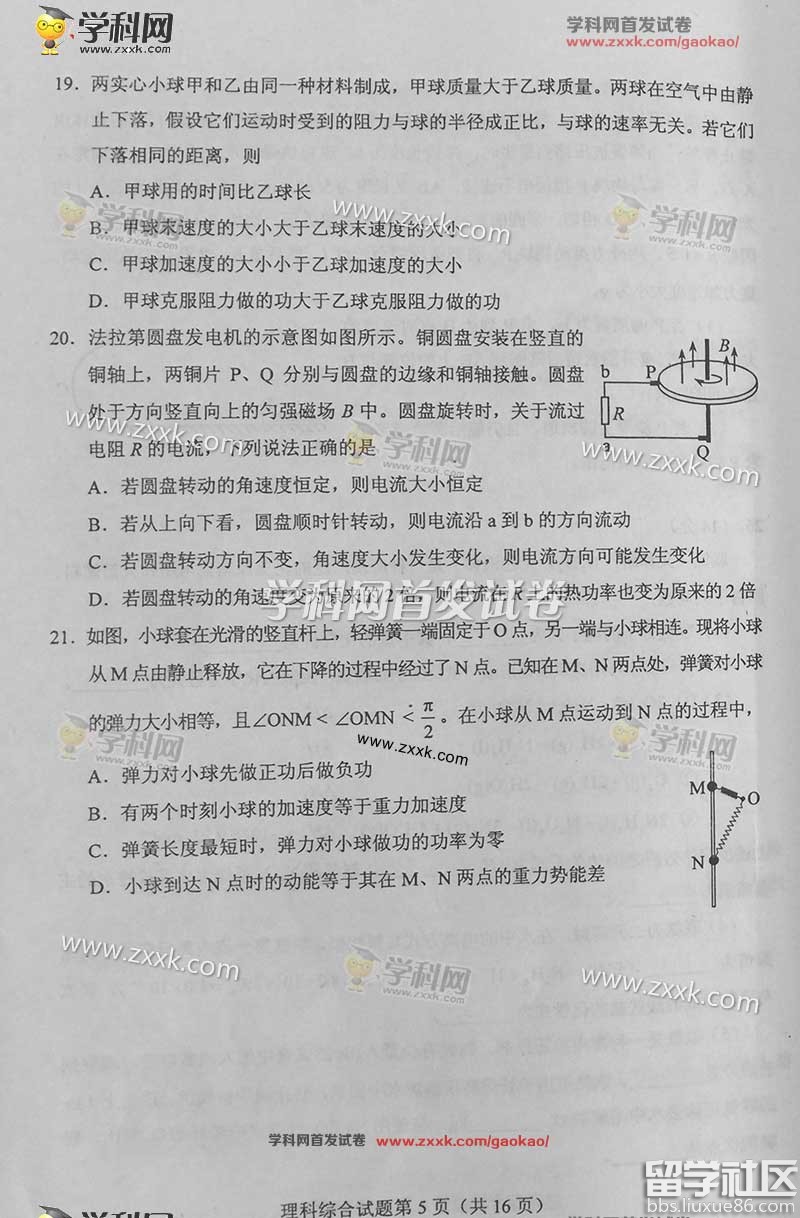 学科网
www.zxxk.com
学科网首发试卷
www.zxxk.com/gaokao/
19．两实心小球甲和乙由同一种材料制成，甲球质量大于乙球质量。两球在空气中由静
止下落，假设它们运动时受到的阻力与球的半径成正比，与球的速率无关。若它们
下落相同的距离，则
A．甲球用的时间比乙球长
B．甲球末速度的大小大于乙球末速度的大小
C．甲球加速度的大小小于乙球加速度的大小
D．甲球克服阻力做的功大于乙球克服阻力做的功
学科网
www.zxxk.com
学科网
20．法拉第圆盘发电机的示意图如图所示。铜圆盘安装在竖直的
铜轴上，两铜片 P、Q 分别与圆盘的边缘和铜轴接触。圆盘
处于方向竖直向上的匀强磁场 B 中。圆盘旋转时，关于流过
电阻 R 的电流，下列说法正确的是
b P B
R
a Q
www.zxxk.com
学科网
www.zxxk.com
A．若圆盘转动的角速度恒定，则电流大小恒定
B．若从上向下看，圆盘顺时针转动，则电流沿 a 到 b 的方向流动
C．若圆盘转动方向不变，角速度大小发生变化，则电流方向可能发生变化
D．若圆盘转动的角速度变为原来的 2 倍，则电流在 R 上的热功率也变为原来的 2 倍
学科网首发试卷
21．如图，小球套在光滑的竖直杆上，轻弹簧一端固定于 O 点，另一端与小球相连。现将小球
从 M 点由静止释放，它在下降的过程中经过了 N 点。已知在 M、N 两点处，弹簧对小球
的弹力大小相等，且∠ONM < ∠OMN < π/2。在小球从 M 点运动到 N 点的过程中，
学科网
www.zxxk.com
学科网
A．弹力对小球先做正功后做负功
B．有两个时刻小球的加速度等于重力加速度
C．弹簧长度最短时，弹力对小球做功的功率为零
D．小球到达 N 点时的动能等于其在 M、N 两点的重力势能差
M
O
N
www.zxxk.com
学科网
www.zxxk.com
学科网首发试卷 www.zxxk.com/gaokao/
理科综合试题第 5 页（共 16 页）
留学社区
bbs.liuxue86.com